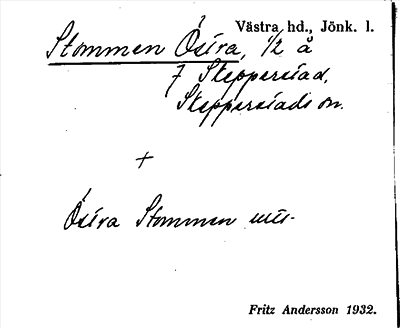 Västra hd., Jönk. l.
Stommen Östra, 1/2 å
7 Steppersiad,
Steppersiads sn.
+
Östra Stommen
Fritz Andersson 1932.